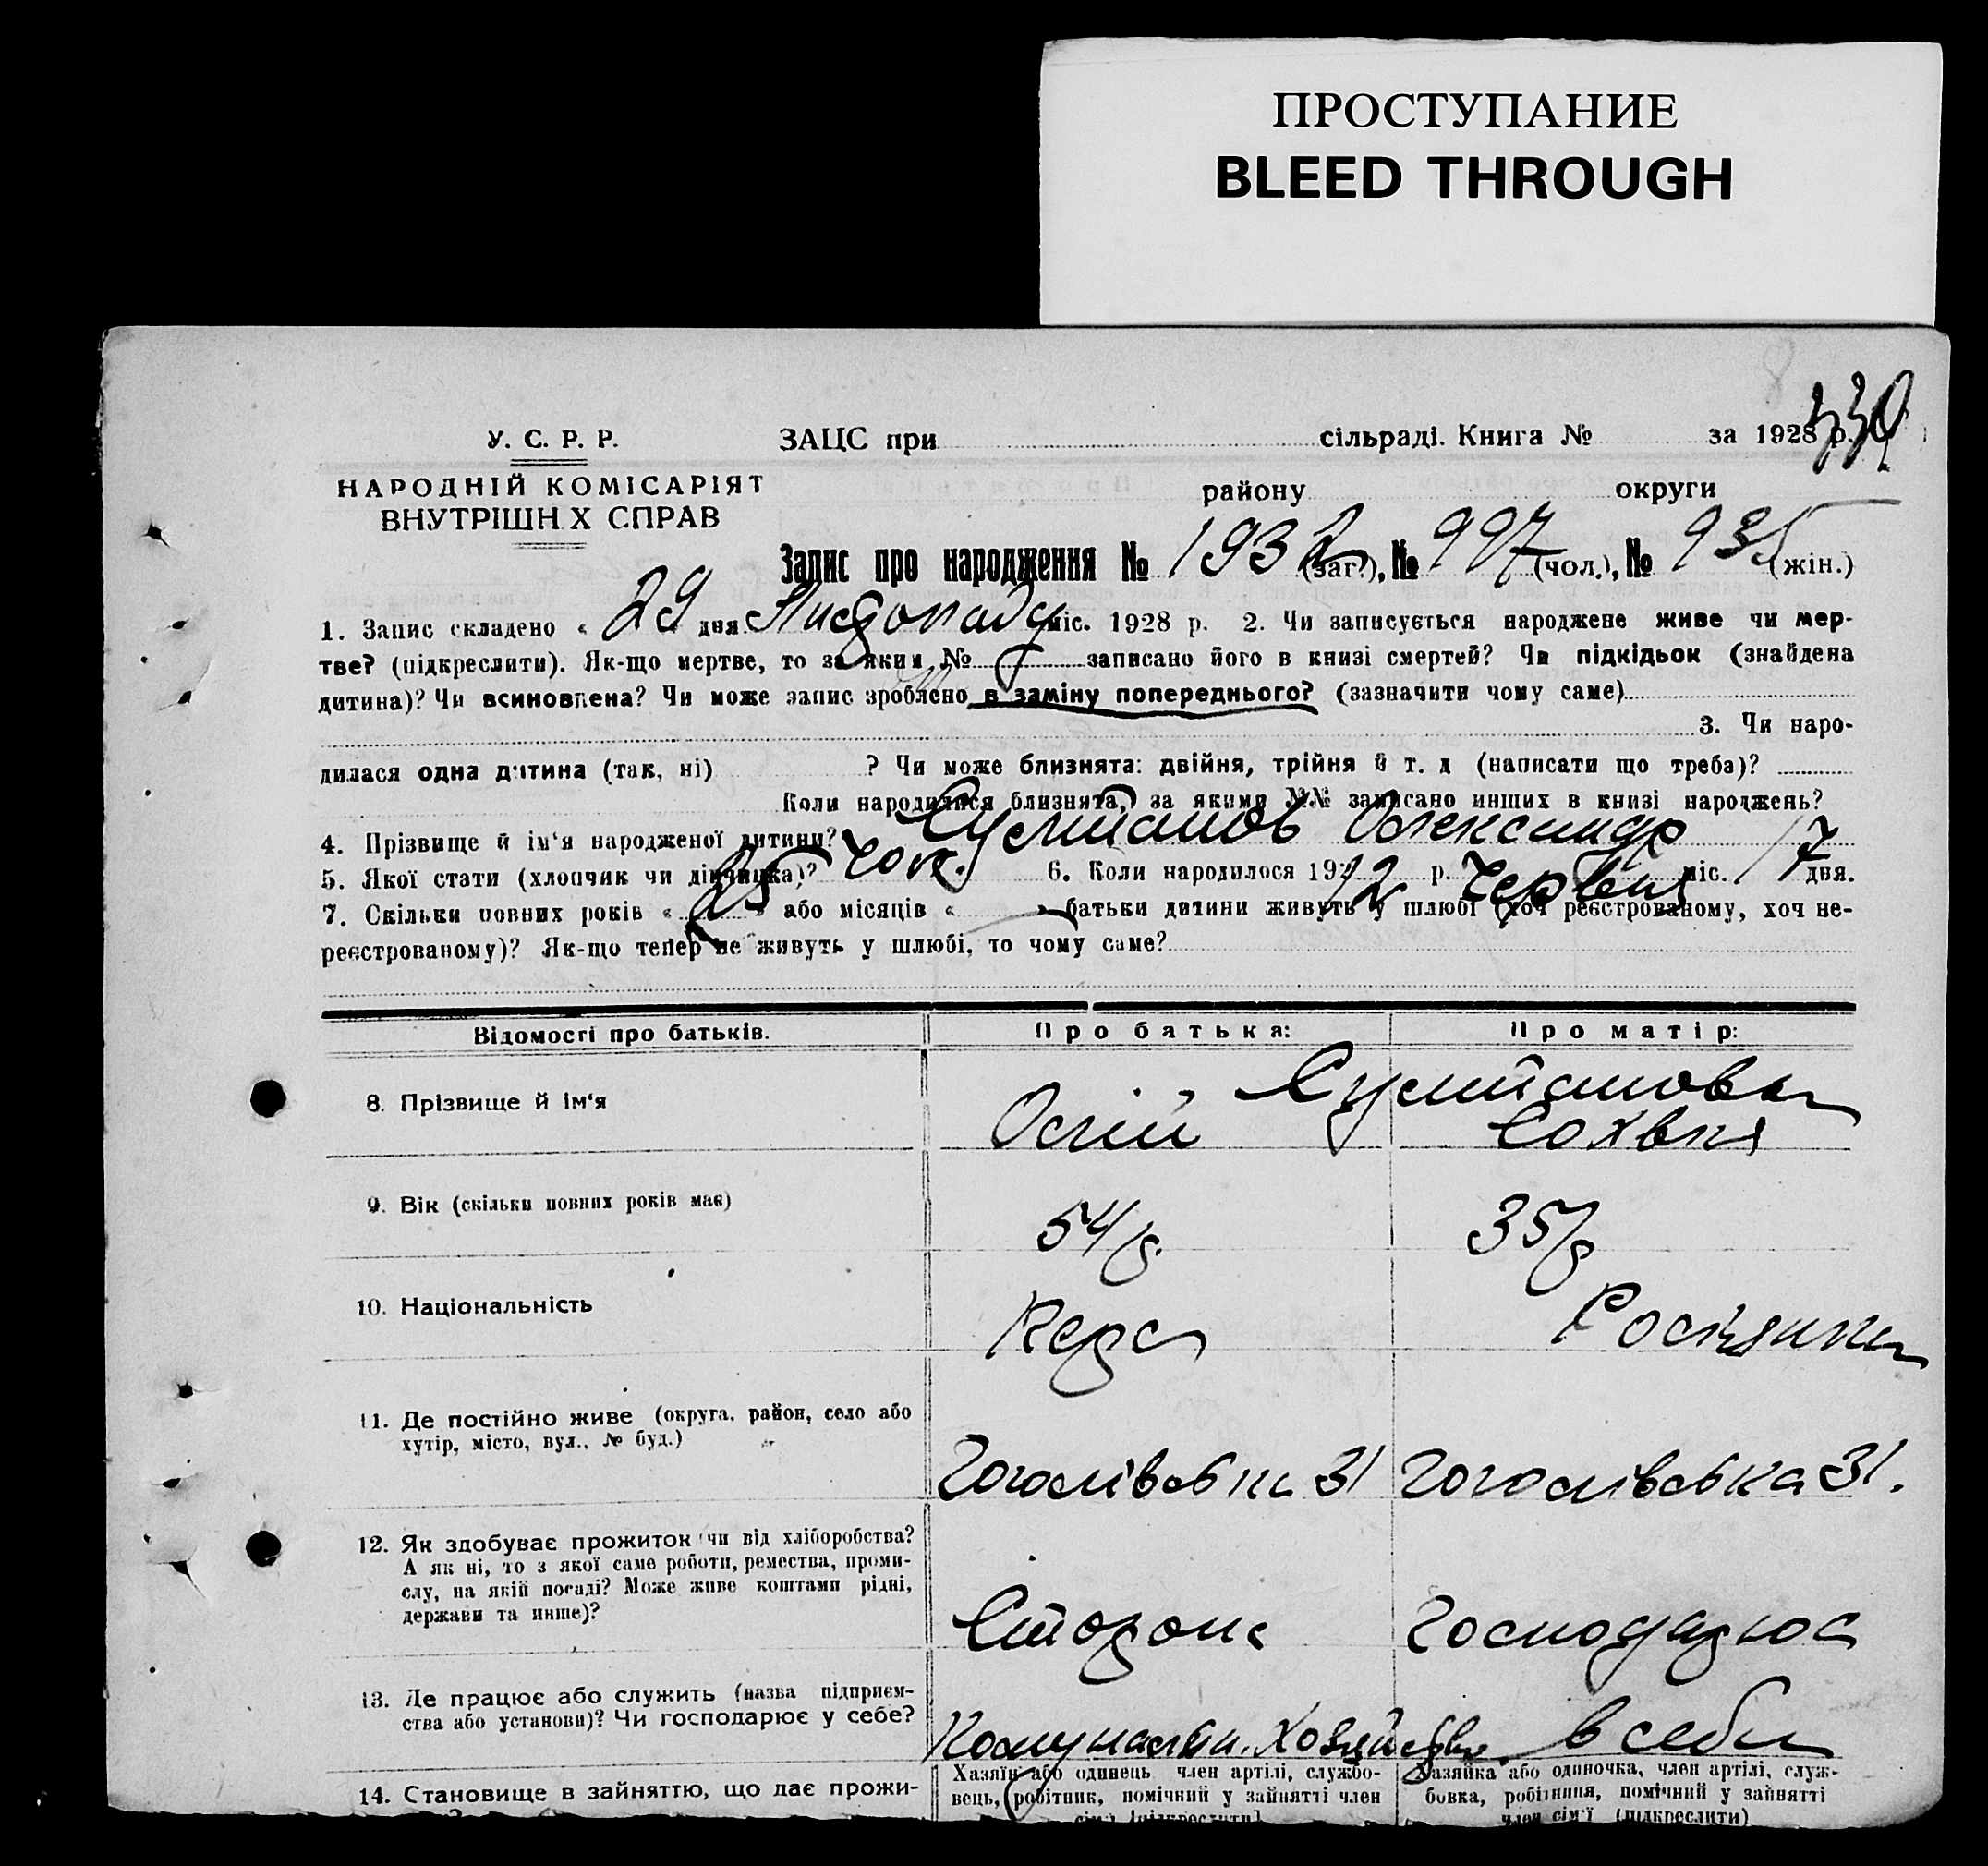 ПРОСТУПАНИЕ
BLEED THROUGH
330
У. С. Р. Р.
ЗАЦС при сільраді. Книга № за 1928 р.
НАРОДНІЙ КОМІСАРІЯТ
ВНУТРІШН Х СПРАВ
району округи
Запис про народження № 1932 (заг.), № 997 (чол.), № 935 (жін.)
1. Запис складено « 29 » дня Листопаду міс. 1928 р. 2. Чи записується народжене живе чи мер-
тве? (підкреслити). Як-що мертве, то за яким № записано його в книзі смертей? Чи підкідьок (знайдена
дитина)? Чи всиновлена? Чи може запис зроблено в заміну попереднього? (зазначити чому саме)
3. Чи наро-
дилася одна дитина (так, ні) ? Чи може близнята: двійня, трійня й т. д (написати що треба)?
Коли народилися близнята, за якими №№ записано инших в книзі народжень?
4. Прізвище й ім'я народженої дитини? Султанов Олександр
5. Якої стати (хлопчик чи дівчинка)? чол. 6. Коли народилося 1912 р. Червня міс. 17 дня.
7. Скільки повних років « 25 » або місяців « » батьки дитини живуть у шлюбі (хоч реєстрованому, хоч не-
реєстрованому)? Як-що тепер не живуть у шлюбі, то чому саме?
Відомості про батьків. Про батька: Про матір:
Султанови
8. Прізвище й ім'я Осий Сохвия
9. Вік (скільки повних років має) 54/р. 35/р
10. Національність Перс Росіянка
11. Де постійно живе (округа, район, село або
хутір, місто, вул., № буд.)
Гоголівська 31 Гоголівська 31.
12. Як здобуває прожиток чи від хліборобства?
А як ні, то з якої саме роботи, ремества, проми-
слу, на якій посаді? Може живе коштами рідні,
держави та инше)?
Сторож Господарює
13. Де працює або служить (назва підприєм-
ства або установи)? Чи господарює у себе?
Комунальн. в себе
14. Становище в зайняттю, що дає прожи-
Хазяїн або одинець член артілі, службо-
вець, робітник, помічний у зайнятті член
сім'ї (підкреслити)
Хазяйка або одиночка, член артілі, служ-
бовка, робітниця, помічний у зайнятті
член сім'ї (підкреслити)